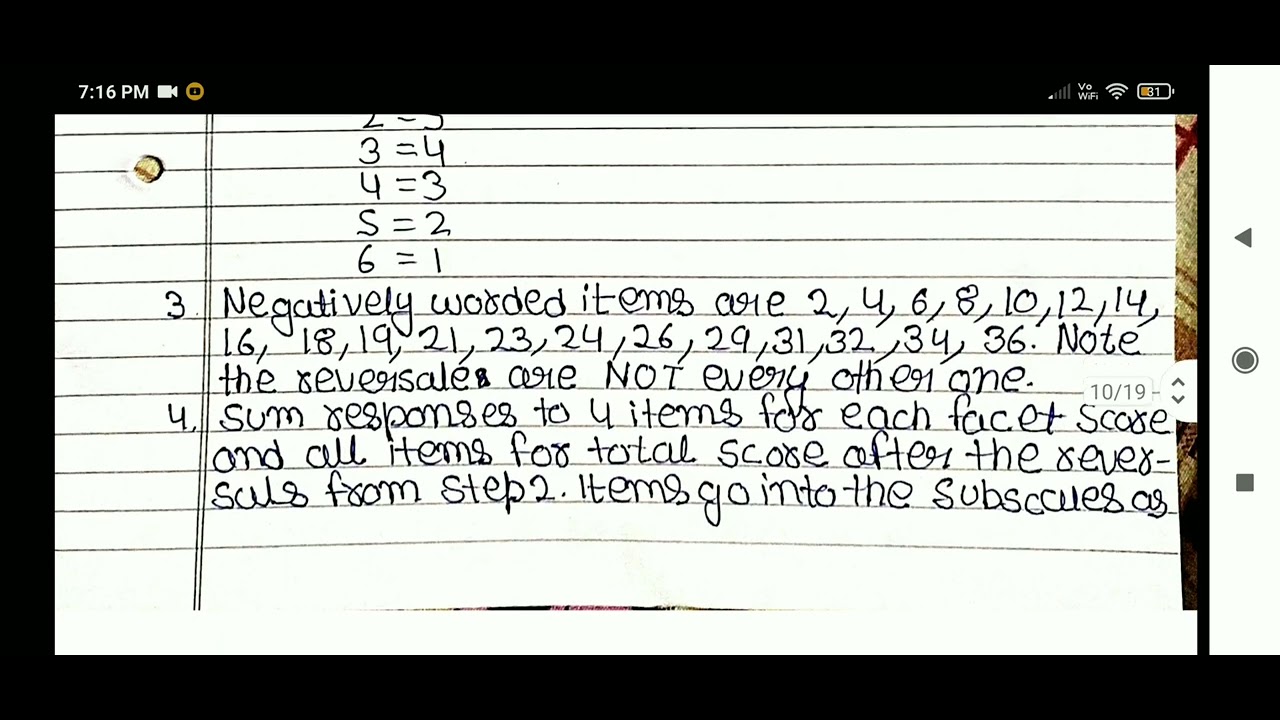 7:16 PM
Vo WiFi 31
3 = 4
4 = 3
5 = 2
6 = 1
3. Negatively worded items are 2, 4, 6, 8, 10, 12, 14,
16, 18, 19, 21, 23, 24, 26, 29, 31, 32, 34, 36. Note
the reversales are NOT every other one.
10/19
4. Sum responses to 4 items for each facet score
and all items for total score after the rever-
sals from step 2. Items go into the subscales as